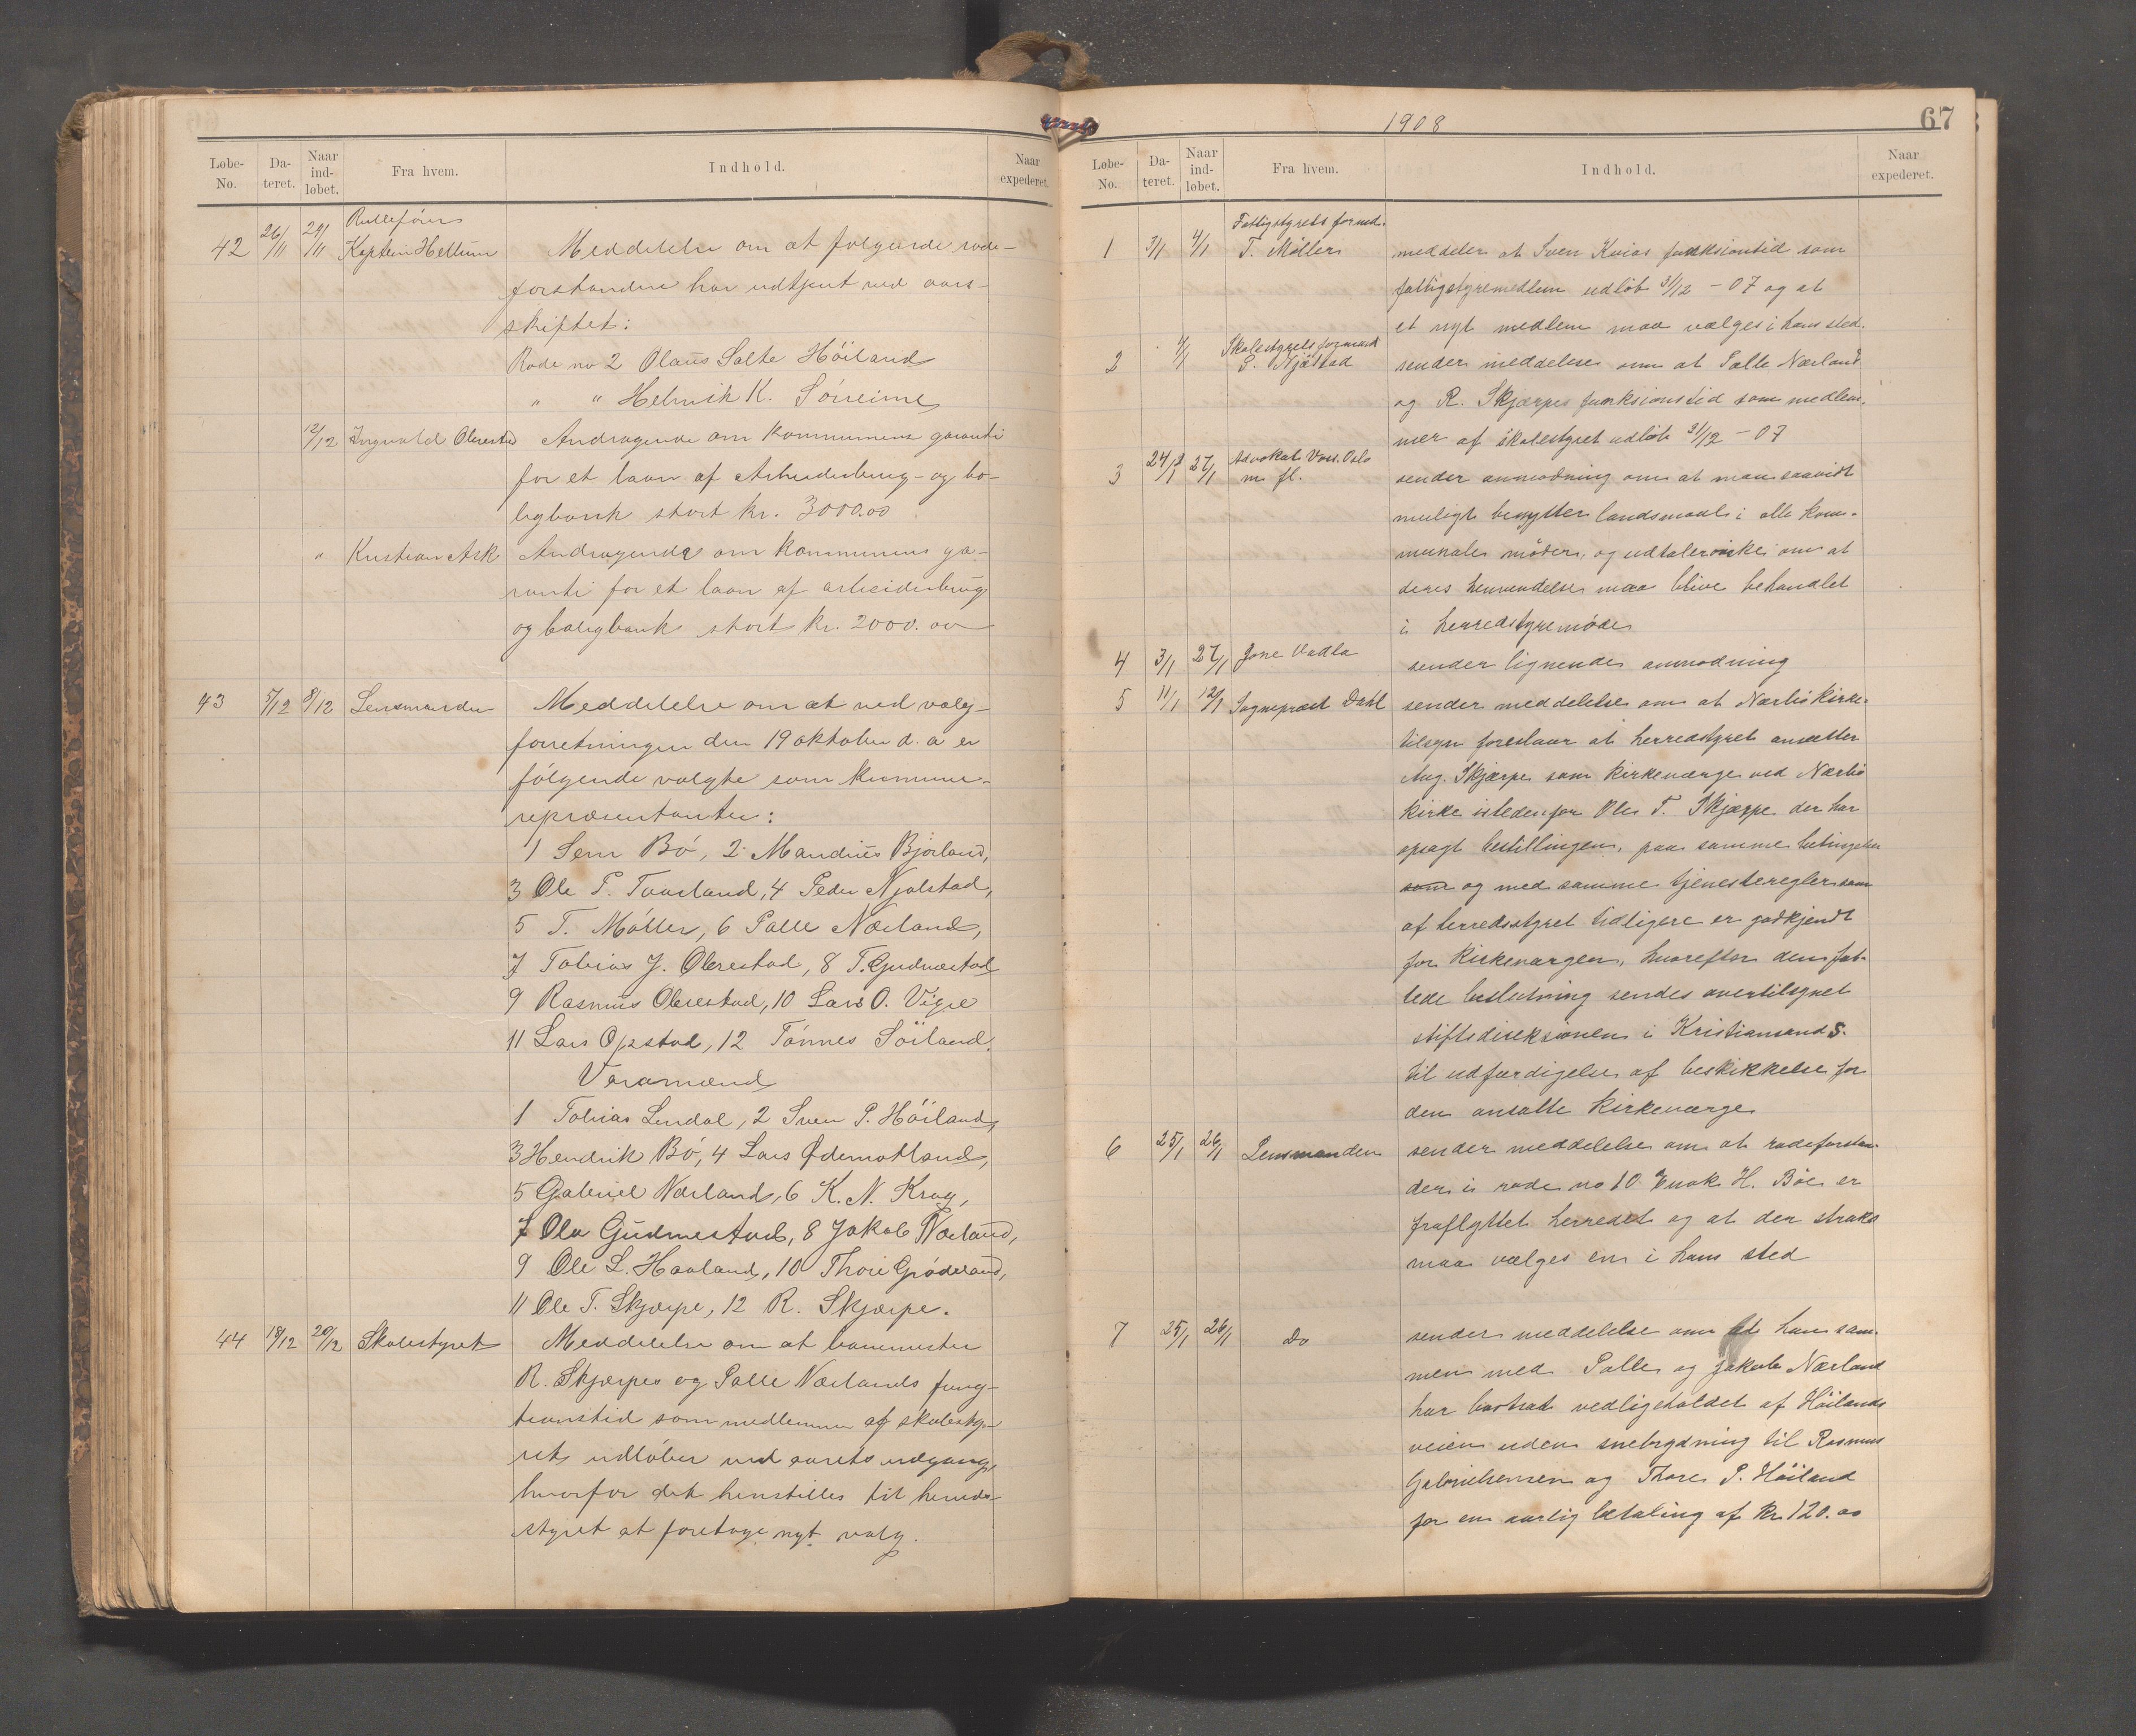 Løbe-No. Da-teret. Naar ind-løbet. Fra hvem. Indhold. Naar expederet.
42 26/11 29/11 Rulleförer
Kaptein Hellum Meddelelse om at følgende rode-
forstandere har udtjent ved aars-
skiftet:
Rode no 2 Olaus Salte Höiland
" " Helmik K. Söreime
12/12 Ingvald Obrestad Andragende om kommunens garanti
for et laan af Arbeiderbrug- og bo-
ligbank stort kr. 3000.00
" Kristian Ask Andragende om kommunens ga-
ranti for et laan af arbeiderbrug
og boligbank stort kr. 2000.00
43 5/12 8/12 Lensmanden Meddelelse om at ved valg-
forretningen den 19 oktober d. a er
følgende valgte som kommune-
repræsentanter:
1 Sem Bö, 2 Mandius Bjorland,
3 Ole P. Tuurland, 4 Peder Njølstad,
5 T. Möller, 6 Palle Nærland,
7 Tobias J. Obrestad, 8 T. Gudmestad
9 Rasmus Obrestad, 10 Lars O. Vigre
11 Lars Opstad, 12 Tönnes Söiland.
Varamænd
1 Tobias Lendal, 2 Sven P. Höiland,
3 Hendrik Bö, 4 Lars Ødemotland,
5 Gabriel Nærland, 6 K. N. Krag,
7 Ola Gudmestad, 8 Jakob Nærland,
9 Ole L. Haaland, 10 Thore Gröderland,
11 Ole T. Skjærpe, 12 R. Skjærpe.
44 18/12 20/12 Skolestyret Meddelelse om at banemester
R. Skjærpes og Palle Nærlands fung-
tionstid som medlemmer af skolesty-
ret udløber ved aarets udgang,
hvorfor det henstilles til herreds-
styret at foretage nyt valg.
1908 67
Løbe-No. Da-teret. Naar ind-løbet. Fra hvem. Indhold. Naar expederet.
1 3/1 4/1 Fattigstyrets formd.
T. Möller meddeler at Sven Kvias funksionstid som
fattigstyremedlem udløb 31/12 - 07 og at
et nyt medlem maa vælges i hans sted.
2 4/1 Skolestyrets formand
P. Njølstad sender meddelelse om at Palle Nærland
og R. Skjærpes funksionstid som medlem-
mer af skolestyret udløb 31/12 - 07
3 24/1 27/1 Advokat Voss. Oslo
m fl. sender anmodning om at man saavidt
muligt benytter landsmaal i alle kom-
munale møder, og udtaler ønske om at
deres henvendelse maa blive behandlet
i herredstyremøde
4 3/1 27/1 Jone Vadla sender lignende anmodning
5 11/1 12/1 Sogneprest Dahl sender meddelelse om at Nærbö kirke-
tilsyn foreslaar at herredstyret ansætter
Aug. Skjærpe som kirkeværge ved Nærbö
kirke istedenfor Ole T. Skjærpe der har
opsagt bestillingen, paa samme betingelser
som og med samme tjenesteregler som
af herredsstyret tidligere er godkjendt
for kirkeværgen, hvorefter den fat-
tede beslutning sendes overtilsynet
stiftsdireksionen i Kristiansand S.
til udfærdigelse af beskikkelse for
den ansatte kirkeværge
6 25/1 26/1 Lensmanden sender meddelelse om at rodeforstan-
der i rode no 10 Enok H. Böe er
fraflyttet herredet og at der straks
maa vælges en i hans sted
7 25/1 26/1 Do sender meddelelse om at han sam-
men med Palle og Jakob Nærland
har bortsat vedligeholdet af Höilands
veien uden snebrydning til Rasmus
Gabrielsensen og Thore P. Höiland
for en aarlig betaling af kr 120.00